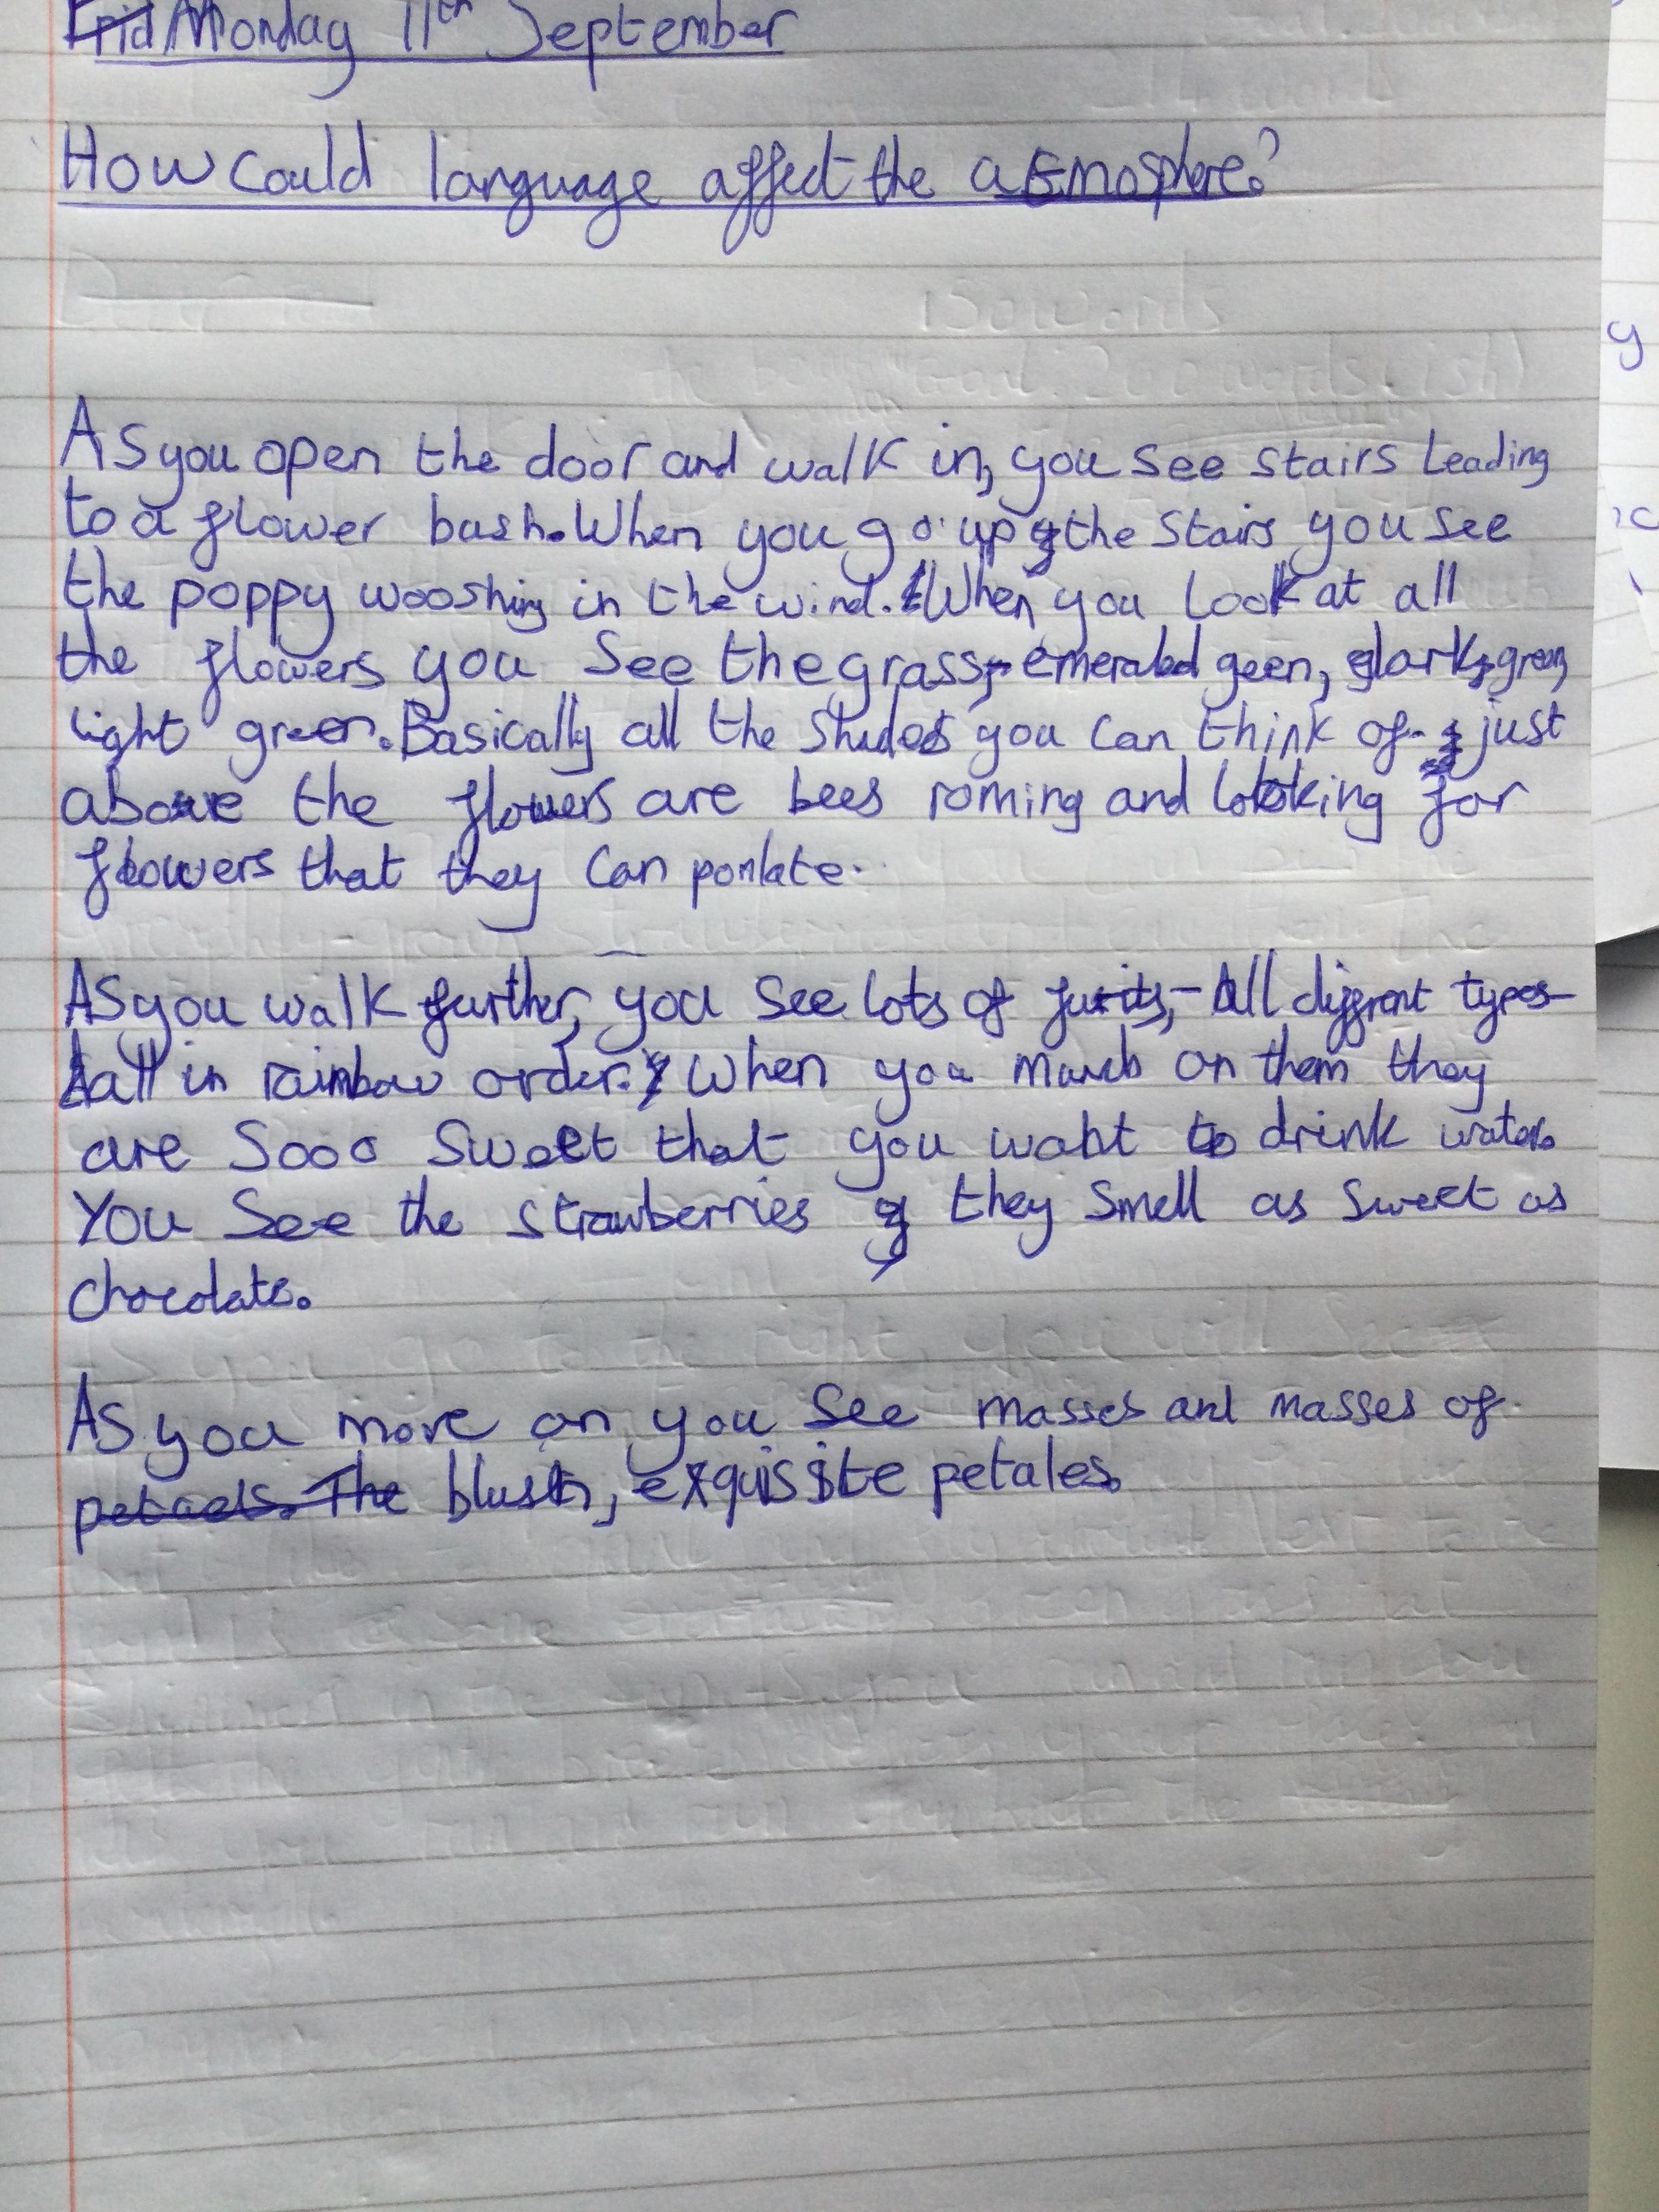 Monday 11th September
How could language affect the atmosphere?
As you open the door and walk in, you see stairs leading
to a flower bush. When you go up the stairs you see
the poppy wooshing in the wind. When you look at all
the flowers you see the grass, emerald geen, dark green,
light green. Basically all the shades you can think of. just
above the flowers are bees roming and looking for
flowers that they can ponlate.
As you walk further, you see lots of furits, - All diffrent types -
all in rainbow order. When you munch on them they
are sooo sweet that you want to drink water.
You see the strawberries they smell as sweet as
chocolate.
As you move on you see masses and masses of
petaels. The blush, exquisite petales.